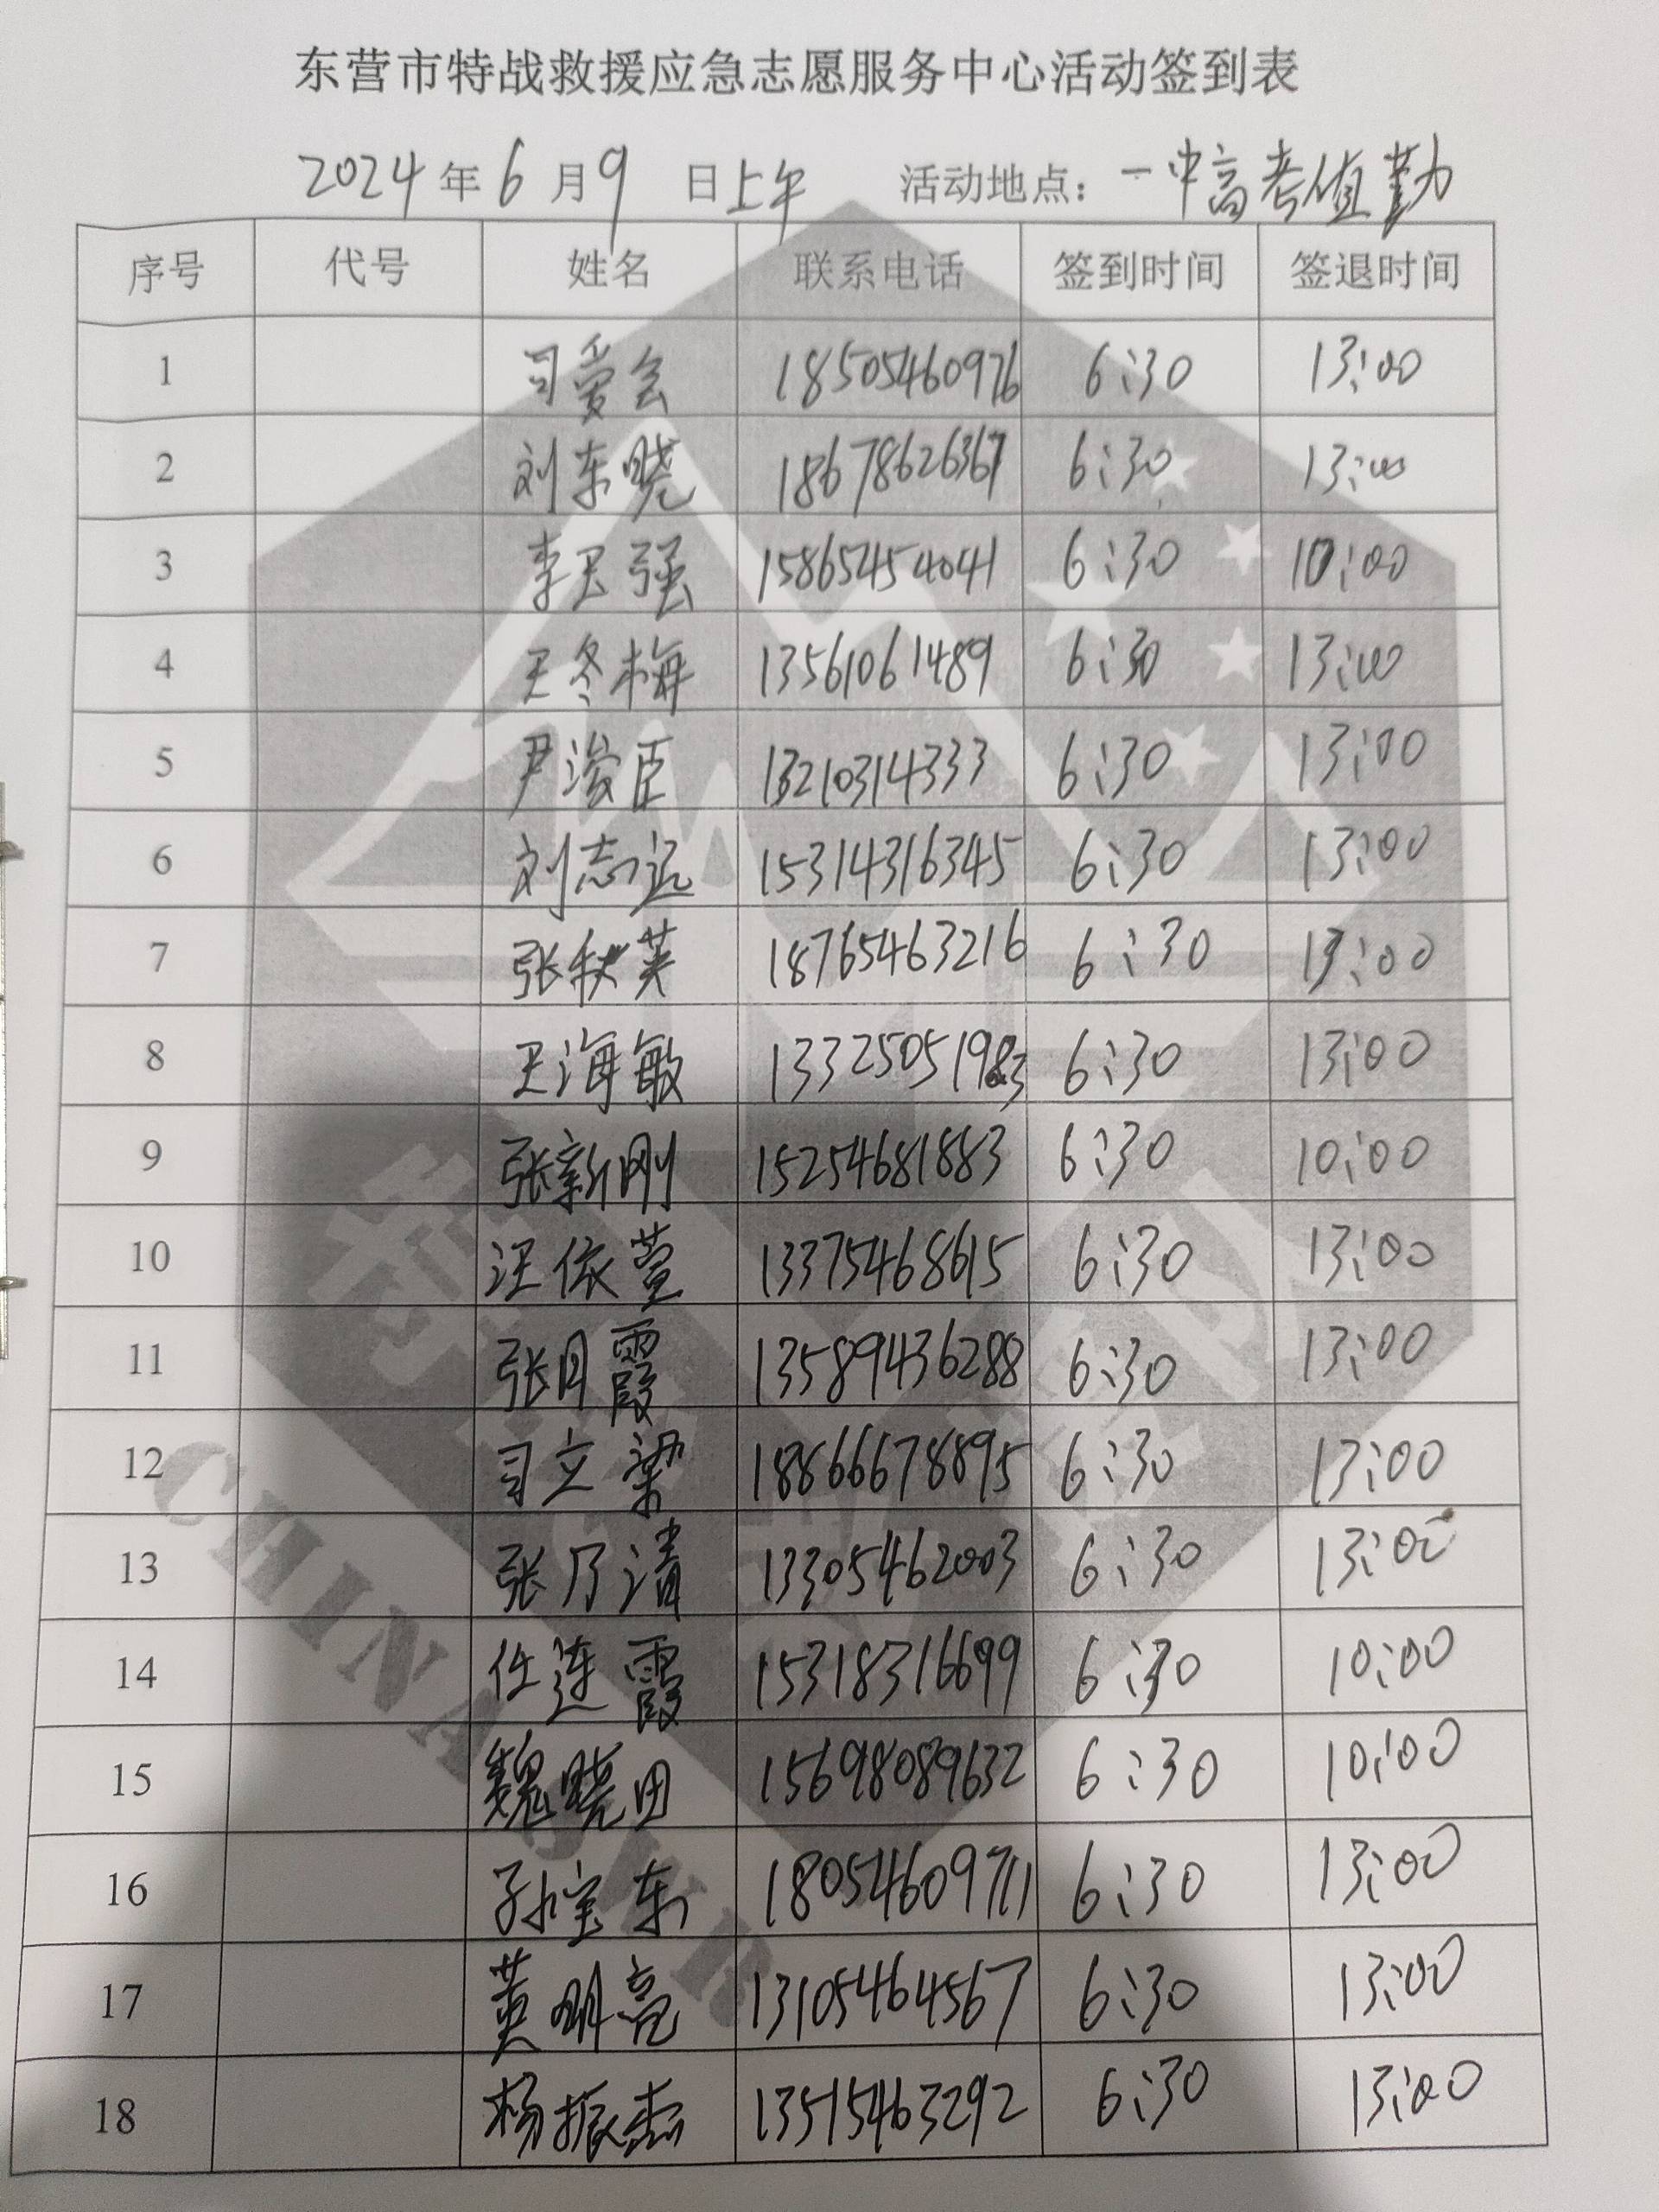 东营市特战救援应急志愿服务中心活动签到表
2024年6月9日上午 活动地点：一中高考值勤
序号 代号 姓名 联系电话 签到时间 签退时间
1 司爱会 18505460976 6:30 13:00
2 刘东晓 18678626367 6:30 13:00
3 李卫强 15865454041 6:30 10:00
4 王冬梅 13561061489 6:30 13:00
5 尹浚臣 13210314333 6:30 13:00
6 刘志远 15314316345 6:30 13:00
7 张秋英 18765463216 6:30 13:00
8 王海敏 13325051983 6:30 13:00
9 张新刚 15254681883 6:30 10:00
10 汪依萱 13375468615 6:30 13:00
11 张月霞 13589436288 6:30 13:00
12 司立梁 18866678895 6:30 13:00
13 张乃清 13305462003 6:30 13:00
14 任连霞 15318316699 6:30 10:00
15 魏晓田 15698089632 6:30 10:00
16 孙宝东 18054609711 6:30 13:00
17 黄明亮 13105464567 6:30 13:00
18 杨振杰 13515463292 6:30 13:00
CHINA